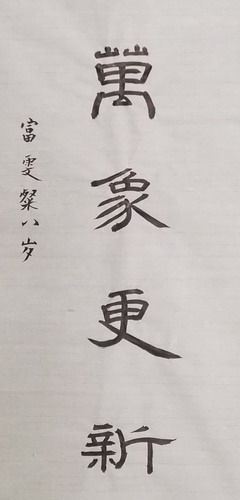 萬象更新
富雯粲八岁